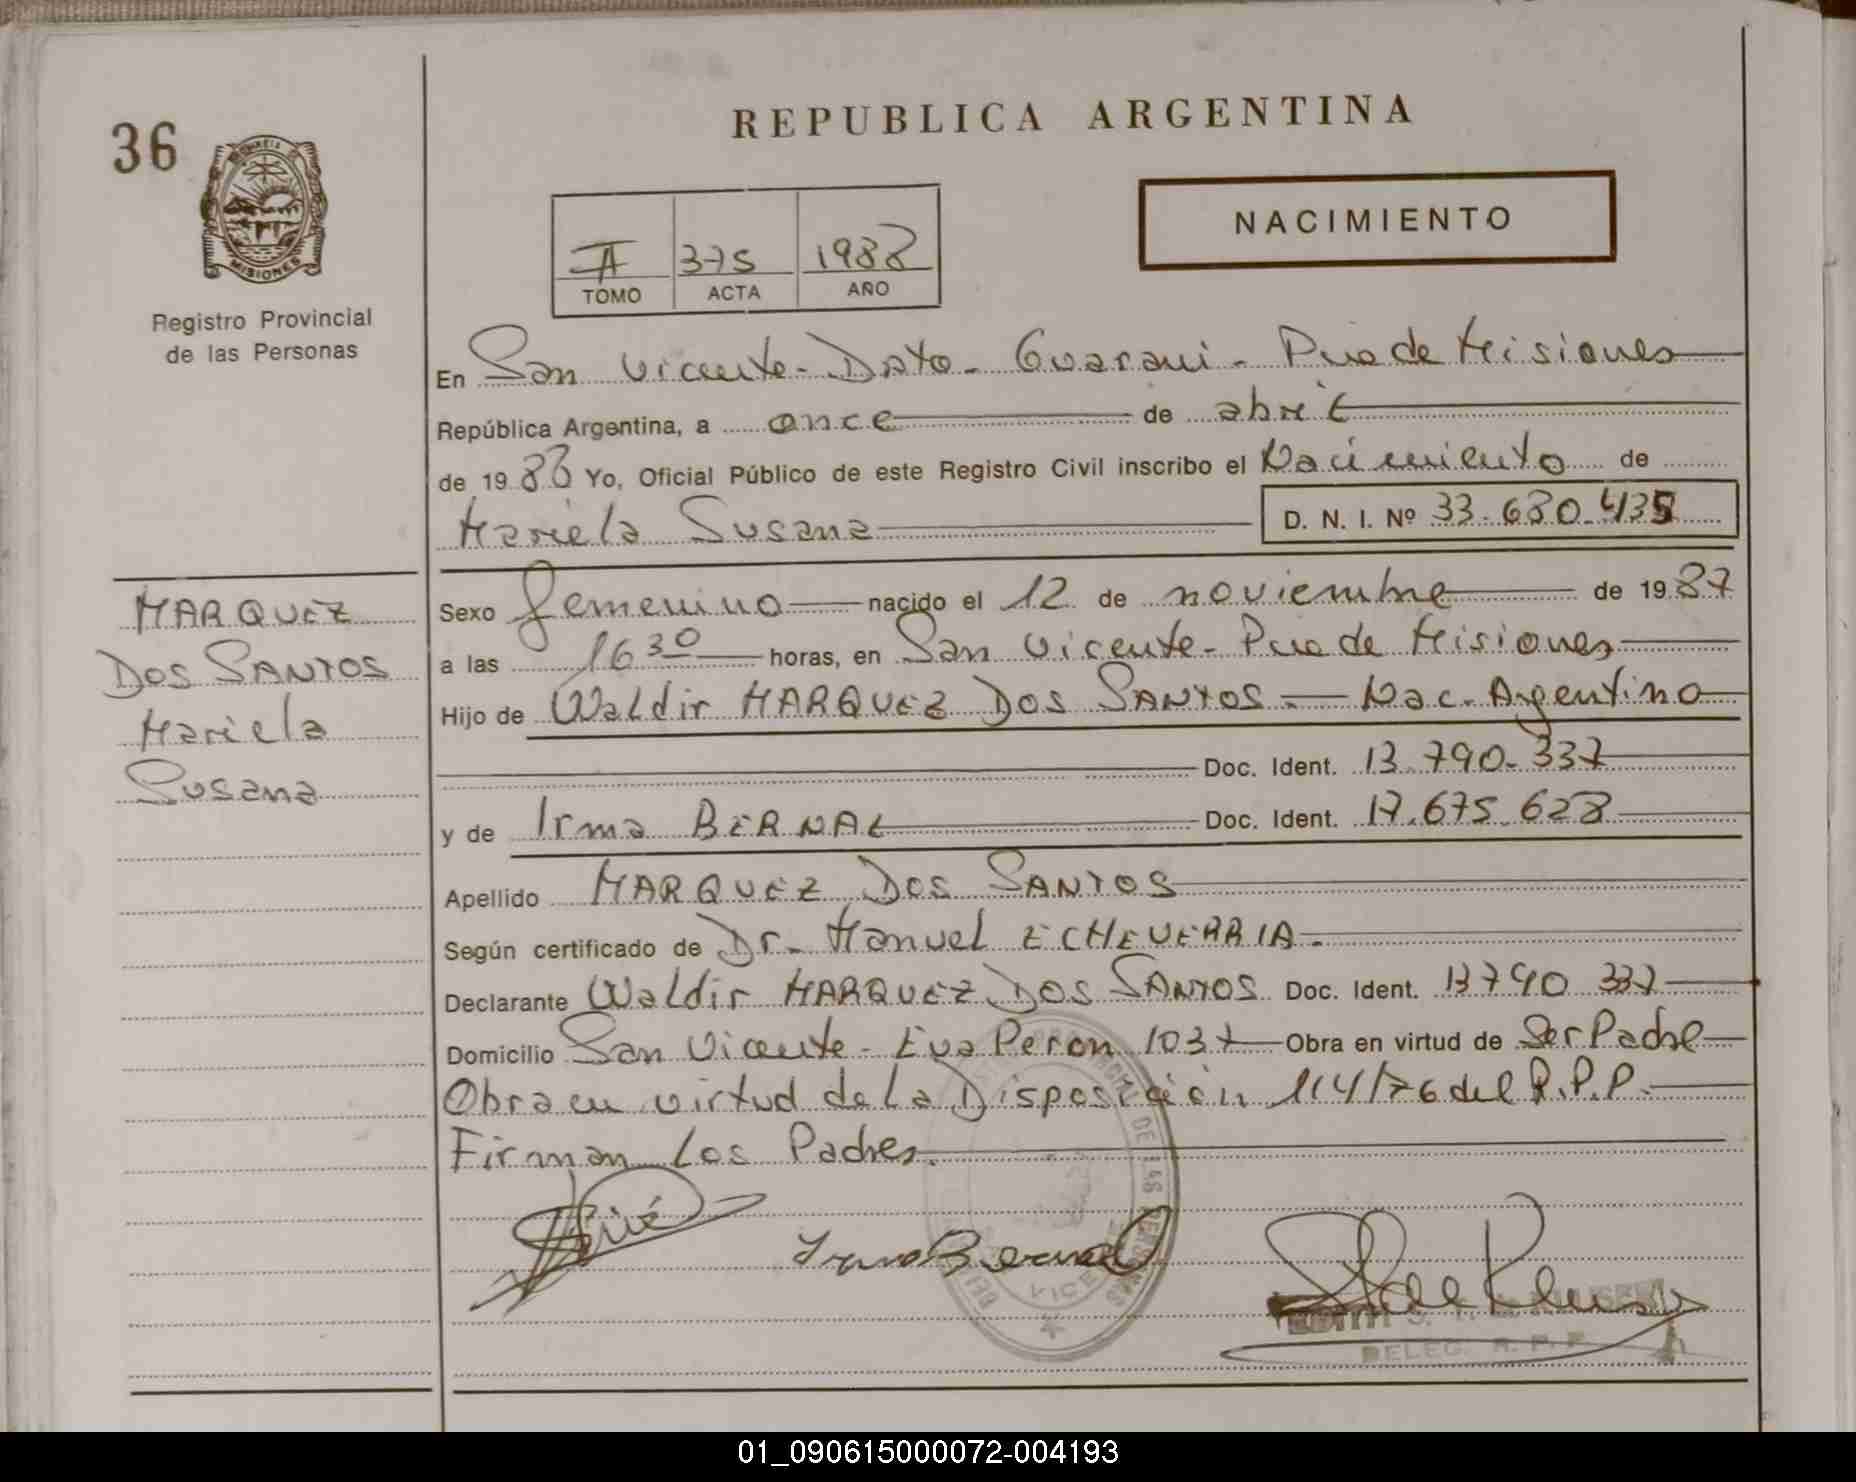 REPUBLICA ARGENTINA
36
NACIMIENTO
II 375 1988
TOMO ACTA AÑO
Registro Provincial
de las Personas
MISIONES
En San Vicente - Dpto. Guarani - Pcia de Misiones
República Argentina, a once de abril
de 1988 Yo, Oficial Público de este Registro Civil inscribo el Nacimiento de
Mariela Susana D. N. I. Nº 33.680.435
MARQUEZ
DOS SANTOS
Mariela
Susana
Sexo femenino nacido el 12 de noviembre de 1987
a las 16 30 horas, en San Vicente - Pcia de Misiones
Hijo de Waldir MARQUEZ DOS SANTOS - Nac. Argentino
Doc. Ident. 13.790.337
y de Irma BERNAL Doc. Ident. 17.675.628
Apellido MARQUEZ DOS SANTOS
Según certificado de Dr. Manuel ECHEVERRIA.
Declarante Waldir MARQUEZ DOS SANTOS Doc. Ident. 13790 337
Domicilio San Vicente - Eva Peron 1037 Obra en virtud de Ser Padre
Obra en virtud de la Disposición 114/76 del R.P.P.
Firman los Padres.
Irma Bernal
DE LAS PERSONAS
EDITH S.
DELEG. R. P. P.
01_090615000072-004193